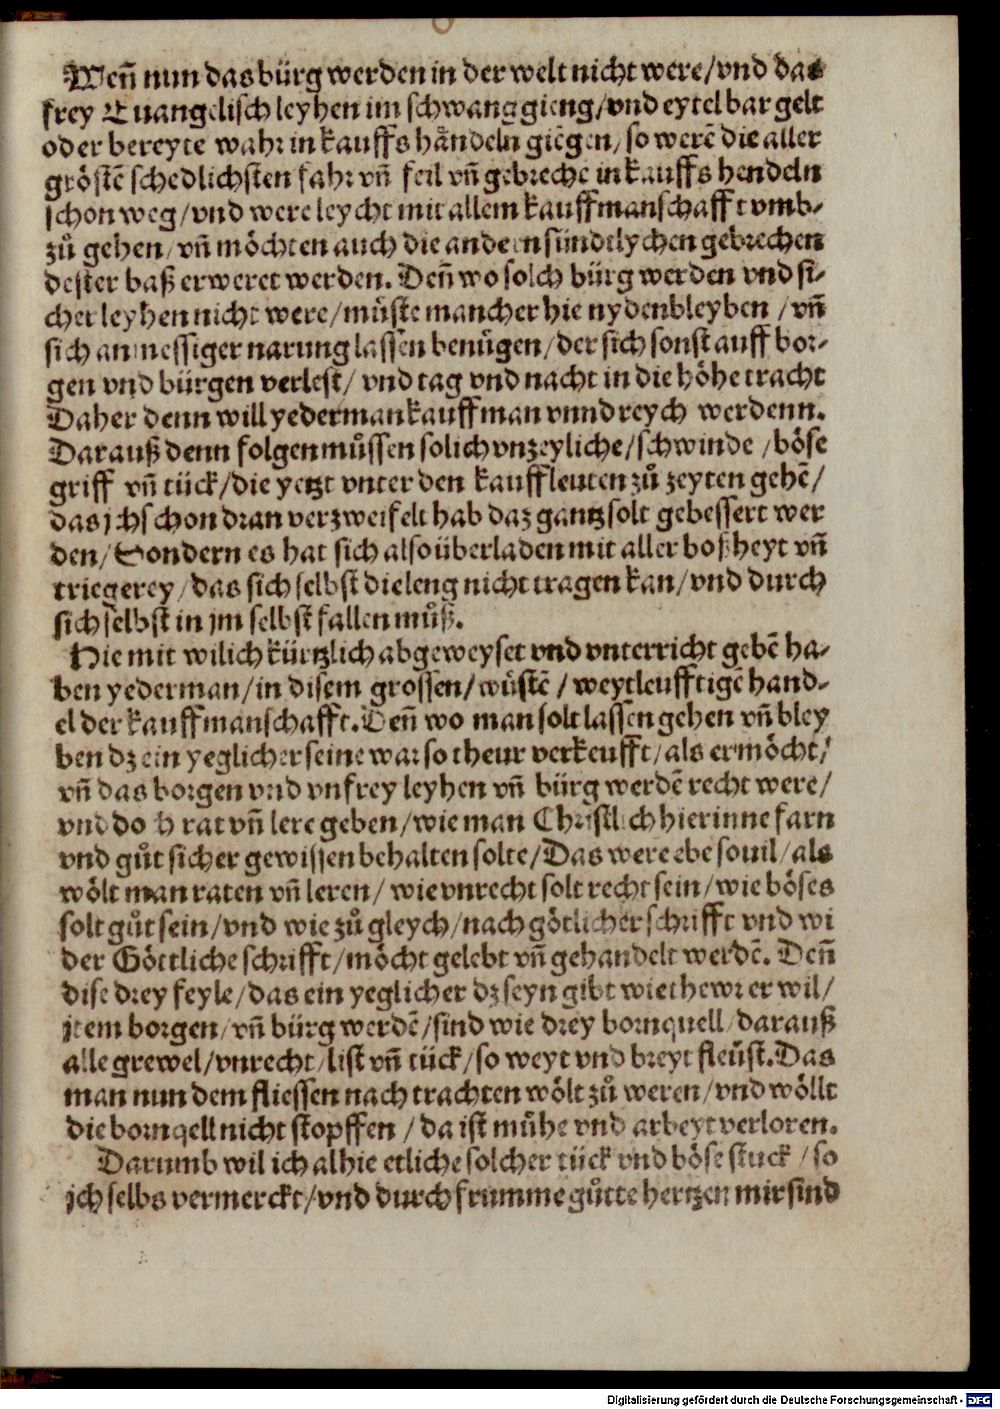 Weñ nun das bürg werden in der welt nicht were/vnd das
frey Euangelisch leyhen im schwang gieng/vnd eytel bar gelt
oder bereyte wahr in kauffs håndeln giēgen/so werē die aller
gröstē schedlichsten fahr vñ feil vñ gebreche in kauffs hendeln
schon weg/vnd were leycht mit allem kauffmanschafft vmb-
zů gehen/vñ möchten auch die andern sündtlychen gebrechen
dester baß erweret werden. Deñ wo solch bürg werden vnd si-
cher leyhen nicht were/můste mancher hie nyden bleyben/vñ
sich an messiger narung lassen benůgen/der sich sonst auff bor-
gen vnd bürgen verlest/vnd tag vnd nacht in die höhe tracht
Daher denn will yederman kauffman vnnd reych werdenn.
Darauß denn folgen můssen solich vnzeyliche/schwinde/böse
griff vñ tück/die yetzt vnter den kauffleuten zů zeyten gehē/
das jch schon dran verzweifelt hab daz gantz solt gebessert wer
den/Sondern es hat sich also überladen mit aller boßheyt vñ
triegerey/das sich selbst die leng nicht tragen kan/vnd durch
sich selbst in jm selbst fallen můß.
Hie mit wil ich kürtzlich abgeweyset vnd vnterricht gebē ha-
ben yederman/in disem grossen/wůstē/weytleufftigē hand-
el der kauffmanschafft. Deñ wo man solt lassen gehen vñ bley
ben dz ein yeglicher seine war so theur verkeufft/als er möcht/
vñ das borgen vnd vnfrey leyhen vñ bürg werdē recht were/
vnd doch rat vñ lere geben/wie man Christlich hierinne farn
vnd gůt sicher gewissen behalten solte/Das were ebē souil/als
wölt man raten vñ leren/wie vnrecht solt recht sein/wie böses
solt gůt sein/vnd wie zů gleych/nach götlicher schrifft vnd wi
der Göttliche schrifft/möcht gelebt vñ gehandelt werdē. Deñ
dise drey feyle/das ein yeglicher dz seyn gibt wie thewr er wil/
jtem borgen/vñ bürg werdē/sind wie drey bornquell/darauß
alle grewel/vnrecht/list vñ tück/so weyt vnd breyt fleüst. Das
man nun dem fliessen nach trachten wölt zů weren/vnd wöllt
die bornqell nicht stopffen/da ist můhe vnd arbeyt verloren.
Darumb wil ich alhie etliche solcher tück vnd böse stuck/so
jch selbs vermerckt/vnd durch frumme gůtte hertzen mir sind
Digitalisierung gefördert durch die Deutsche Forschungsgemeinschaft - DFG